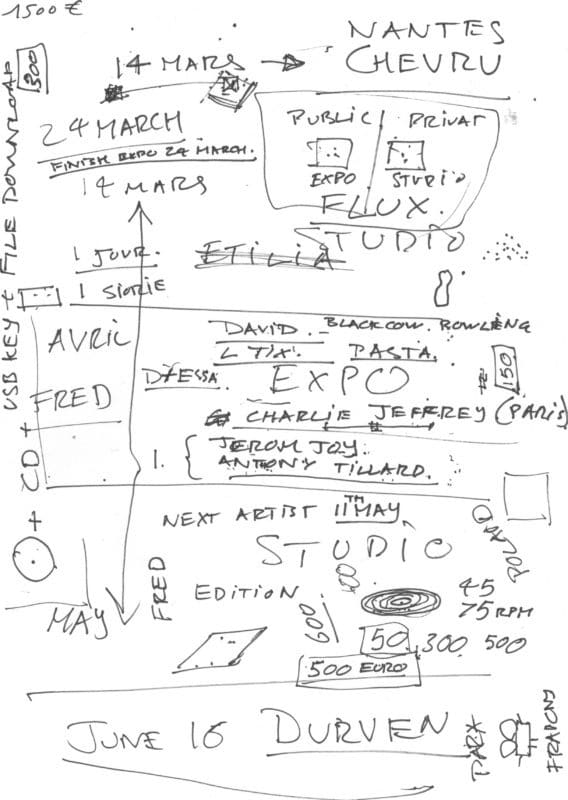 1500 €
NANTES
14 MARS → CHEVRU
300
24 MARCH
PUBLIC PRIVAT
FINISH EXPO 24 MARCH.
14 MARS
EXPO STUDIO
FLUX.
STUDIO
1 JOUR.
1 STORIE
USB KEY + FILE DOWNLOAD
DAVID - BLACKCOW. ROWLIENG
AVRIL
L TIX. PASTA.
EXPO
150
FRED
CHARLIE JEFFREY (PARIS)
1. { JEROM JOY.
ANTONY TILLARD.
+ CD +
NEXT ARTIST 11TH MAY
STUDIO
POLAND
FRED
EDITION
400
45
75 RPM
MAY
600
50 300 500
500 EURO
JUNE 16 DURVEN